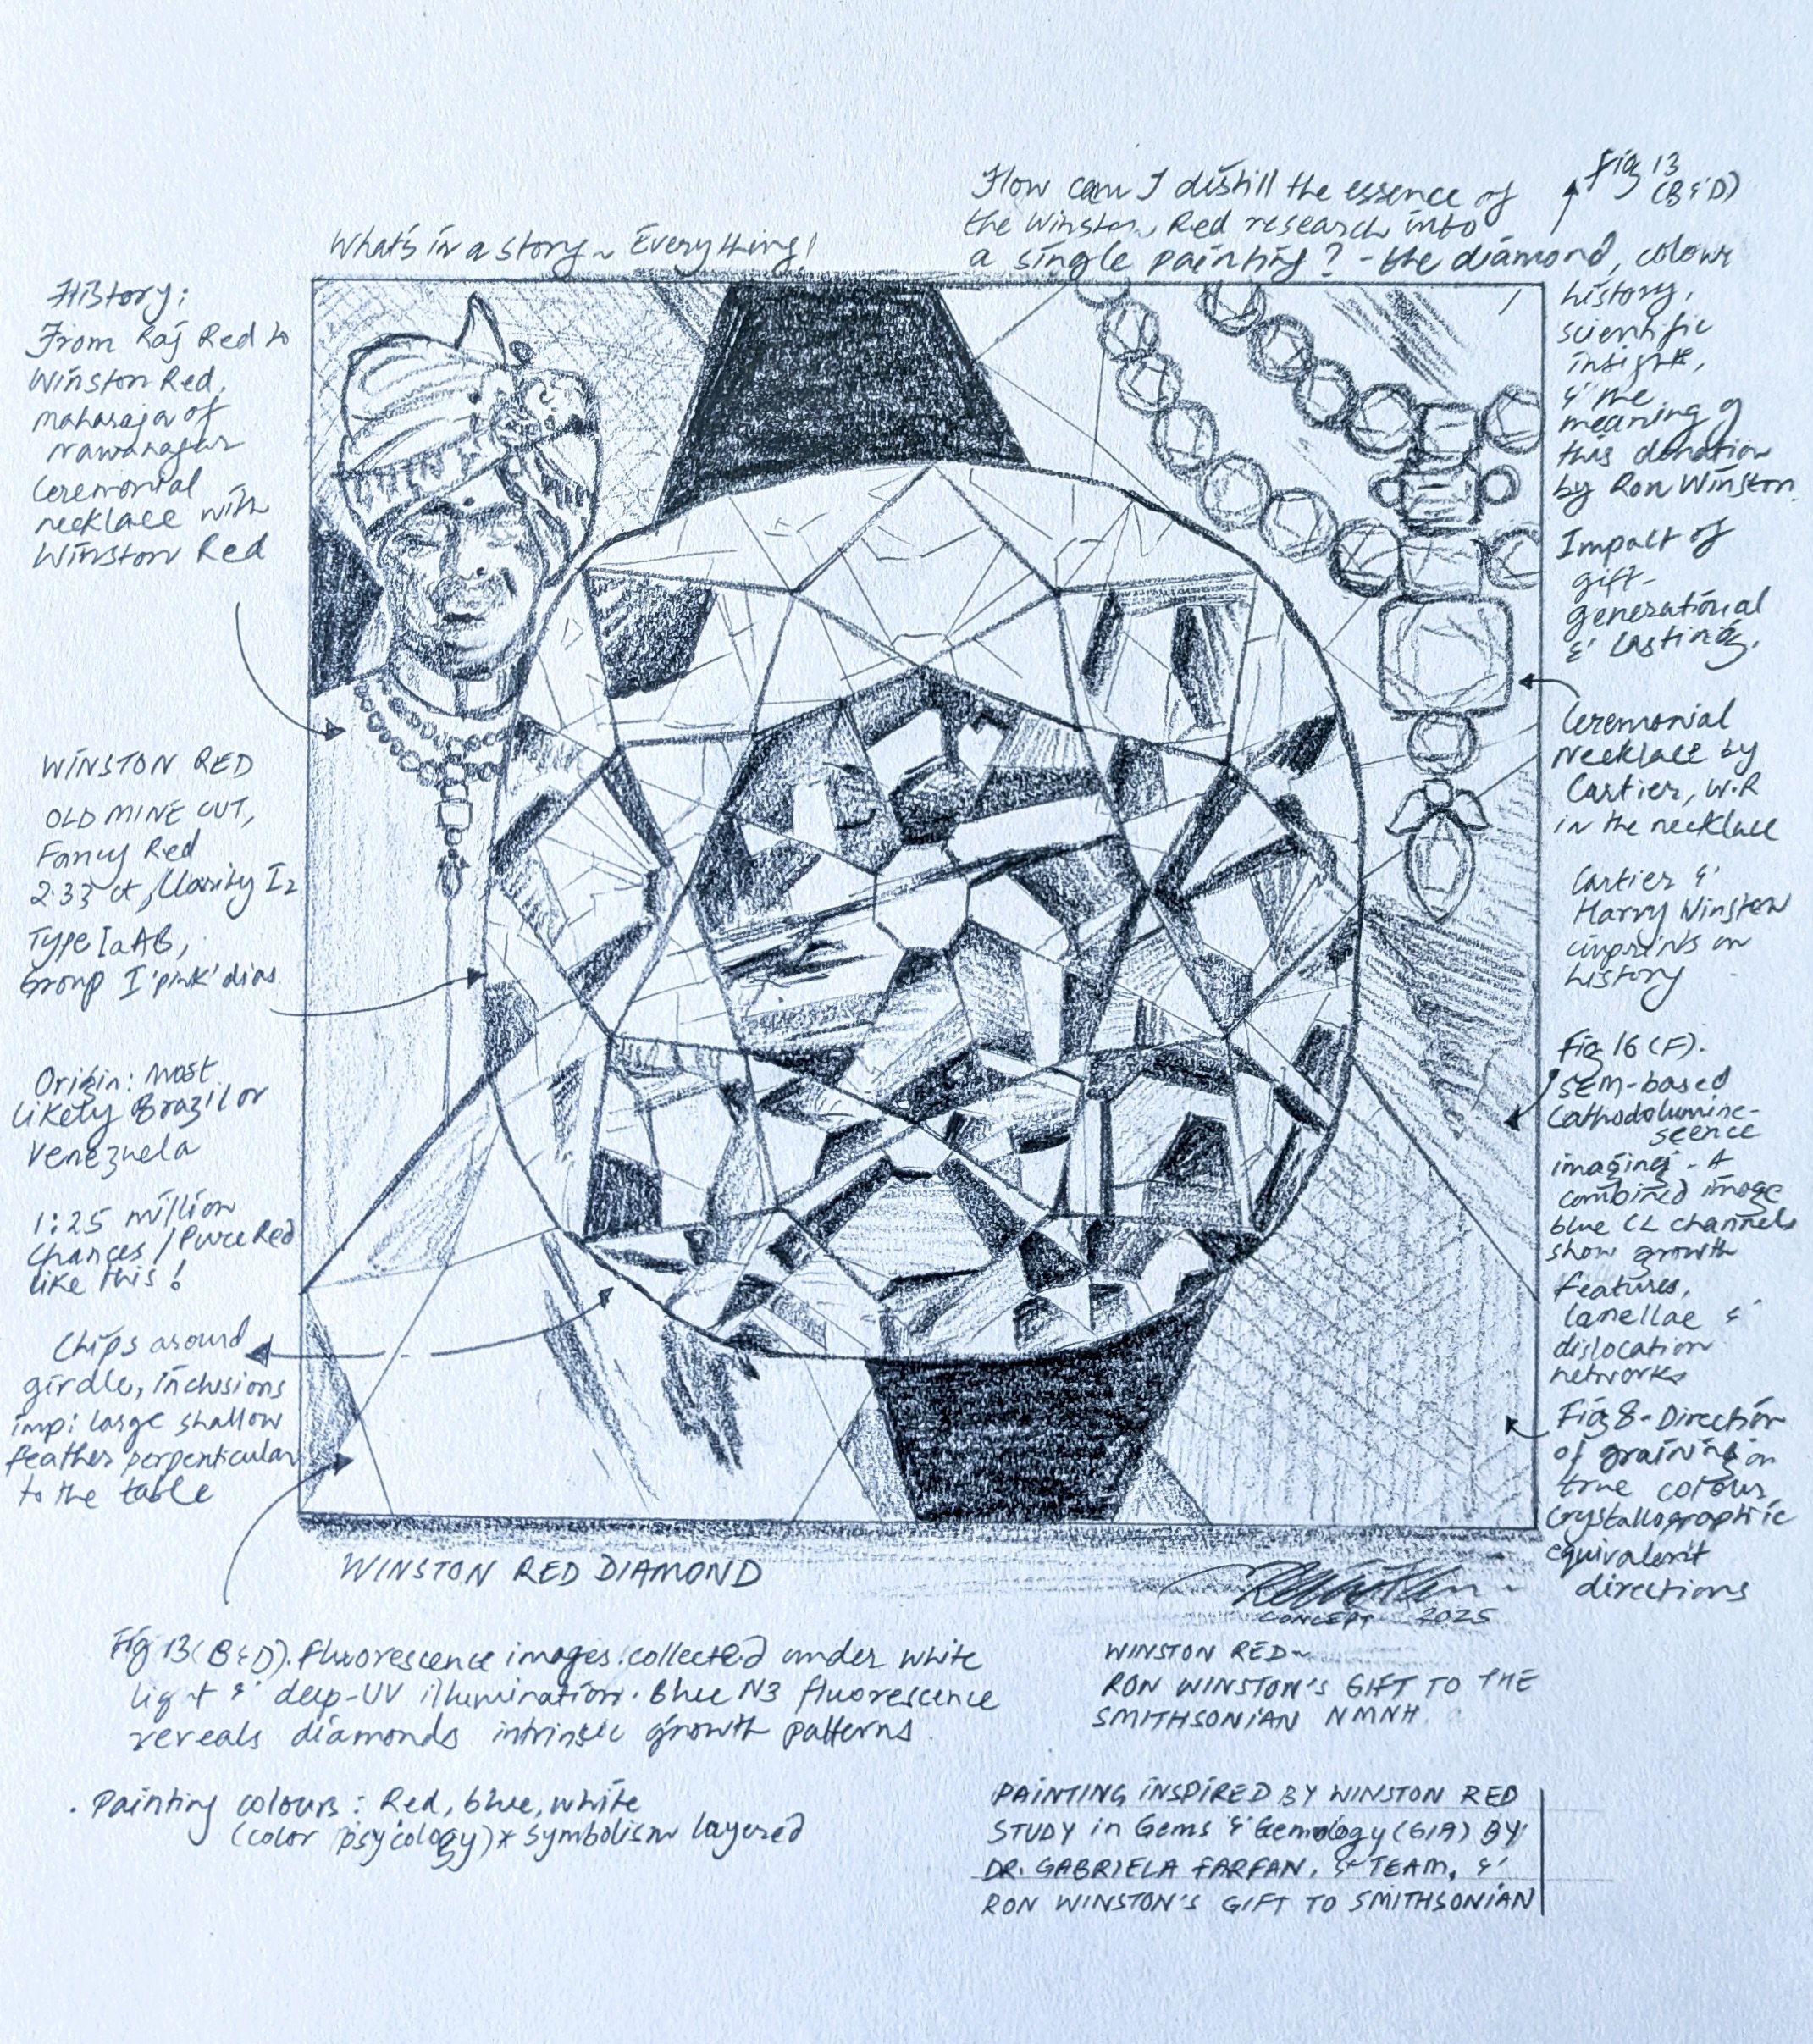 What's in a story ~ Everything!
How can I distill the essence of
the Winston Red research into
a single painting? - the diamond, colour
history,
scientific
insight,
& the
meaning of
this donation
by Ron Winston.
Fig 13
(B & D)
Impact of
gift -
generational
& lasting.
Ceremonial
Necklace by
Cartier, W.R
in the necklace
Cartier &
Harry Winston
imprints on
history
Fig 16 (F).
SEM-based
Cathodolumine-
scence
imaging - A
combined image
blue CL channels
show growth
features,
lamellae &
dislocation
networks
Fig 8 - Direction
of graining on
true colour,
crystallographic
equivalent
directions
History:
From Raj Red to
Winston Red,
Maharaja of
Nawanagar
Ceremonial
necklace with
Winston Red
WINSTON RED
OLD MINE CUT,
Fancy Red
2.33 ct, Clarity I2
Type IaAB,
Group I 'pink' dias.
Origin: most
likely Brazil or
Venezuela
1:25 million
Chances / Pure Red
like this!
Chips around
girdle, inclusions
imp: large shallow
feather perpenticular
to the table
WINSTON RED DIAMOND
CONCEPT 2025
Fig 13 (B & D). Fluorescence images collected under white
light & deep-UV illumination. Blue N3 fluorescence
reveals diamonds intrinsic growth patterns.
WINSTON RED ~
RON WINSTON'S GIFT TO THE
SMITHSONIAN NMNH.
. Painting colours: Red, blue, white
(color psycology) * Symbolism layered
PAINTING INSPIRED BY WINSTON RED
STUDY in Gems & Gemology (GIA) BY
DR. GABRIELA FARFAN, & TEAM, &
RON WINSTON'S GIFT TO SMITHSONIAN